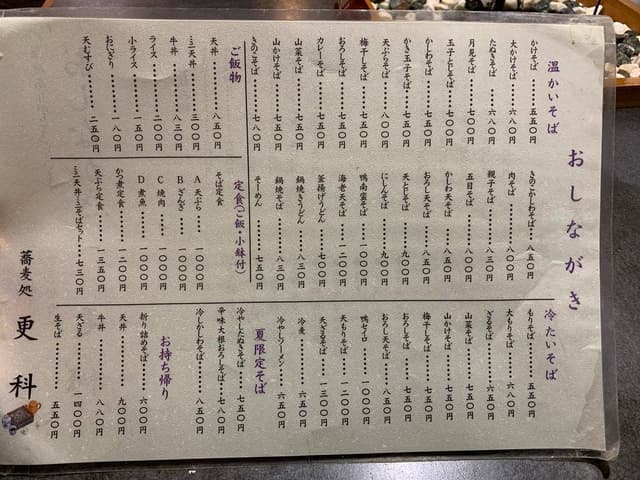 おしながき
温かいそば
かけそば・・・・・・五五〇円
大かけそば・・・・・六八〇円
たぬきそば・・・・・六八〇円
月見そば・・・・・・七〇〇円
玉子とじそば・・・・七五〇円
かしわそば・・・・・七五〇円
かき玉子そば・・・・七五〇円
天ぷらそば・・・・・八〇〇円
梅干しそば・・・・・七五〇円
おろしそば・・・・・七五〇円
カレーそば・・・・・七五〇円
山菜そば・・・・・・七五〇円
山かけそば・・・・・七五〇円
きのこそば・・・・・七八〇円
きのこかしわそば・・八五〇円
肉そば・・・・・・・八〇〇円
親子そば・・・・・・八三〇円
五目そば・・・・・・八五〇円
かしわ天そば・・・・八五〇円
おろし天そば・・・・八五〇円
天とじそば・・・・・九〇〇円
にしんそば・・・・・九〇〇円
鴨南蛮そば・・・・一〇〇〇円
海老天そば・・・・一二〇〇円
釜揚げうどん・・・・七〇〇円
鍋焼きうどん・・・・八三〇円
鍋焼そば・・・・・・八三〇円
そーめん・・・・・・七五〇円
冷たいそば
もりそば・・・・・・五五〇円
大もりそば・・・・・六八〇円
ざるそば・・・・・・六五〇円
山菜そば・・・・・・七五〇円
山かけそば・・・・・七五〇円
梅干しそば・・・・・七五〇円
おろしそば・・・・・七五〇円
おろし天そば・・・・八五〇円
鴨セイロ・・・・・一〇〇〇円
天もりそば・・・・一二〇〇円
天ざるそば・・・・一三〇〇円
冷麦・・・・・・・・六五〇円
冷やしラーメン・・・六五〇円
夏限定そば
冷やしたぬきそば・・七五〇円
辛味大根おろしそば・七八〇円
冷しかしわそば・・・八五〇円
ご飯物
天丼・・・・・・・・八五〇円
ミニ天丼・・・・・・三〇〇円
牛丼・・・・・・・・八三〇円
ライス・・・・・・・二〇〇円
小ライス・・・・・・一五〇円
おにぎり・・・・・・一八〇円
天むすび・・・・・・二五〇円
定食（ご飯・小鉢付）
そば定食
A 天ぷら・・・・・一〇〇〇円
B ぎんざ・・・・・一〇〇〇円
C 焼肉・・・・・・一〇〇〇円
D 煮魚・・・・・・一〇〇〇円
かつ煮定食・・・・一二〇〇円
天ぷら定食・・・・一三五〇円
ミニ天丼・ミニそばセット・・七三〇円
お持ち帰り
折り詰めそば・・・・六〇〇円
天丼・・・・・・・・九〇〇円
牛丼・・・・・・・・八八〇円
天ざる・・・・・・一四〇〇円
生そば・・・・・・・五五〇円
蕎麦処 更科